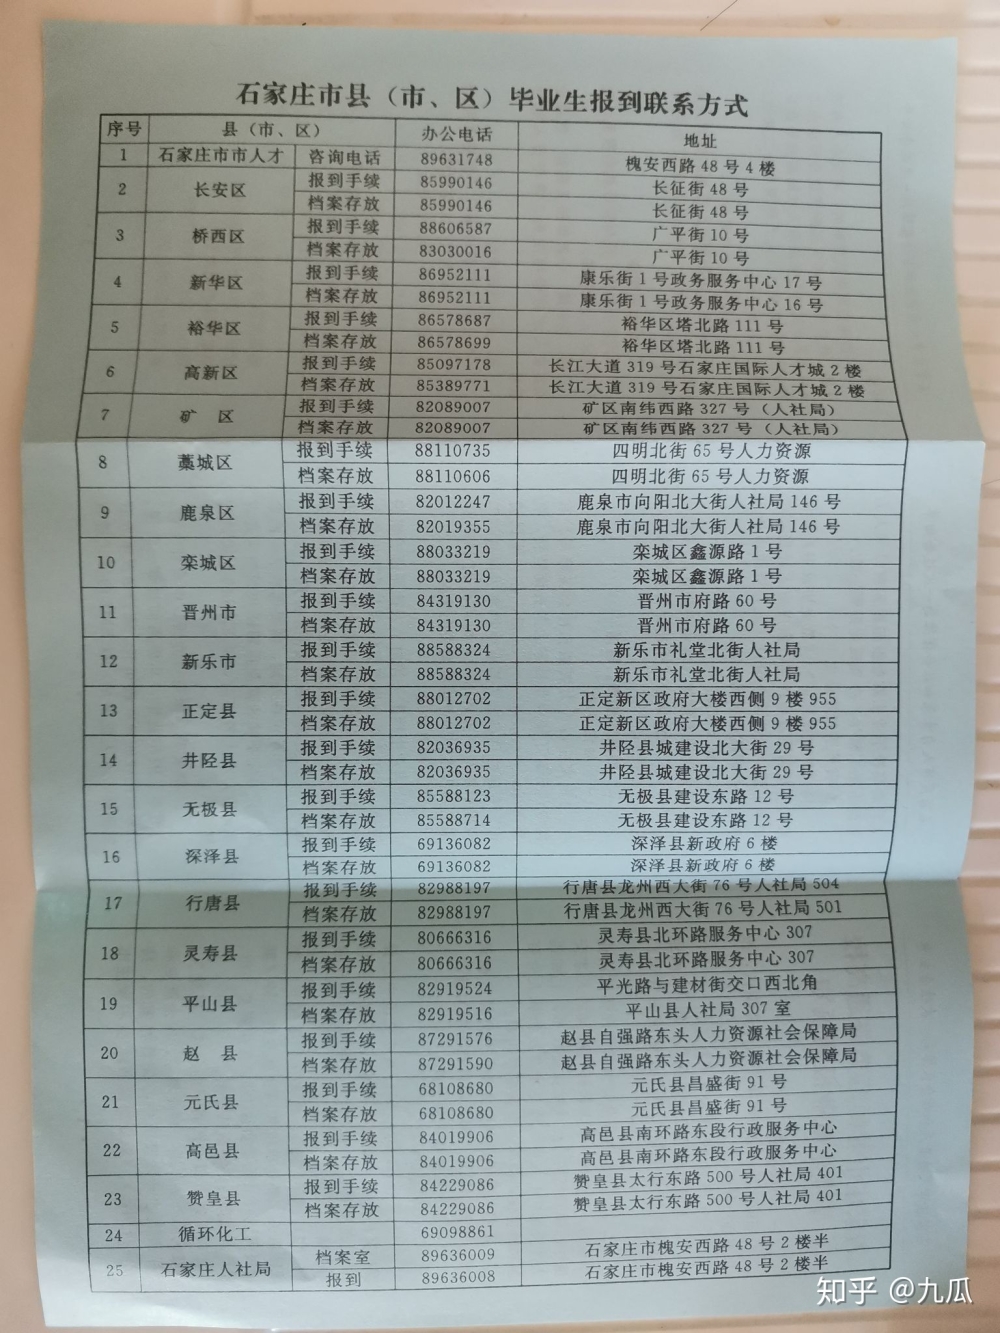 石家庄市县（市、区）毕业生报到联系方式
序号 县（市、区） 办公电话 地址
1 石家庄市市人才 咨询电话 89631748 槐安西路48号4楼
2 长安区 报到手续 85990146 长征街48号
档案存放 85990146 长征街48号
3 桥西区 报到手续 88606587 广平街10号
档案存放 83030016 广平街10号
4 新华区 报到手续 86952111 康乐街1号政务服务中心17号
档案存放 86952111 康乐街1号政务服务中心16号
5 裕华区 报到手续 86578687 裕华区塔北路111号
档案存放 86578699 裕华区塔北路111号
6 高新区 报到手续 85097178 长江大道319号石家庄国际人才城2楼
档案存放 85389771 长江大道319号石家庄国际人才城2楼
7 矿 区 报到手续 82089007 矿区南纬西路327号（人社局）
档案存放 82089007 矿区南纬西路327号（人社局）
8 藁城区 报到手续 88110735 四明北街65号人力资源
档案存放 88110606 四明北街65号人力资源
9 鹿泉区 报到手续 82012247 鹿泉市向阳北大街人社局146号
档案存放 82019355 鹿泉市向阳北大街人社局146号
10 栾城区 报到手续 88033219 栾城区鑫源路1号
档案存放 88033219 栾城区鑫源路1号
11 晋州市 报到手续 84319130 晋州市府路60号
档案存放 84319130 晋州市府路60号
12 新乐市 报到手续 88588324 新乐市礼堂北街人社局
档案存放 88588324 新乐市礼堂北街人社局
13 正定县 报到手续 88012702 正定新区政府大楼西侧9楼955
档案存放 88012702 正定新区政府大楼西侧9楼955
14 井陉县 报到手续 82036935 井陉县城建设北大街29号
档案存放 82036935 井陉县城建设北大街29号
15 无极县 报到手续 85588123 无极县建设东路12号
档案存放 85588714 无极县建设东路12号
16 深泽县 报到手续 69136082 深泽县新政府6楼
档案存放 69136082 深泽县新政府6楼
17 行唐县 报到手续 82988197 行唐县龙州西大街76号人社局504
档案存放 82988197 行唐县龙州西大街76号人社局501
18 灵寿县 报到手续 80666316 灵寿县北环路服务中心307
档案存放 80666316 灵寿县北环路服务中心307
19 平山县 报到手续 82919524 平光路与建材街交口西北角
档案存放 82919516 平山县人社局307室
20 赵 县 报到手续 87291576 赵县自强路东头人力资源社会保障局
档案存放 87291590 赵县自强路东头人力资源社会保障局
21 元氏县 报到手续 68108680 元氏县昌盛街91号
档案存放 68108680 元氏县昌盛街91号
22 高邑县 报到手续 84019906 高邑县南环路东段行政服务中心
档案存放 84019906 高邑县南环路东段行政服务中心
23 赞皇县 报到手续 84229086 赞皇县太行东路500号人社局401
档案存放 84229086 赞皇县太行东路500号人社局401
24 循环化工 69098861
25 石家庄人社局 档案室 89636009 石家庄市槐安西路48号2楼半
报到 89636008 石家庄市槐安西路48号2楼半
知乎 @九瓜